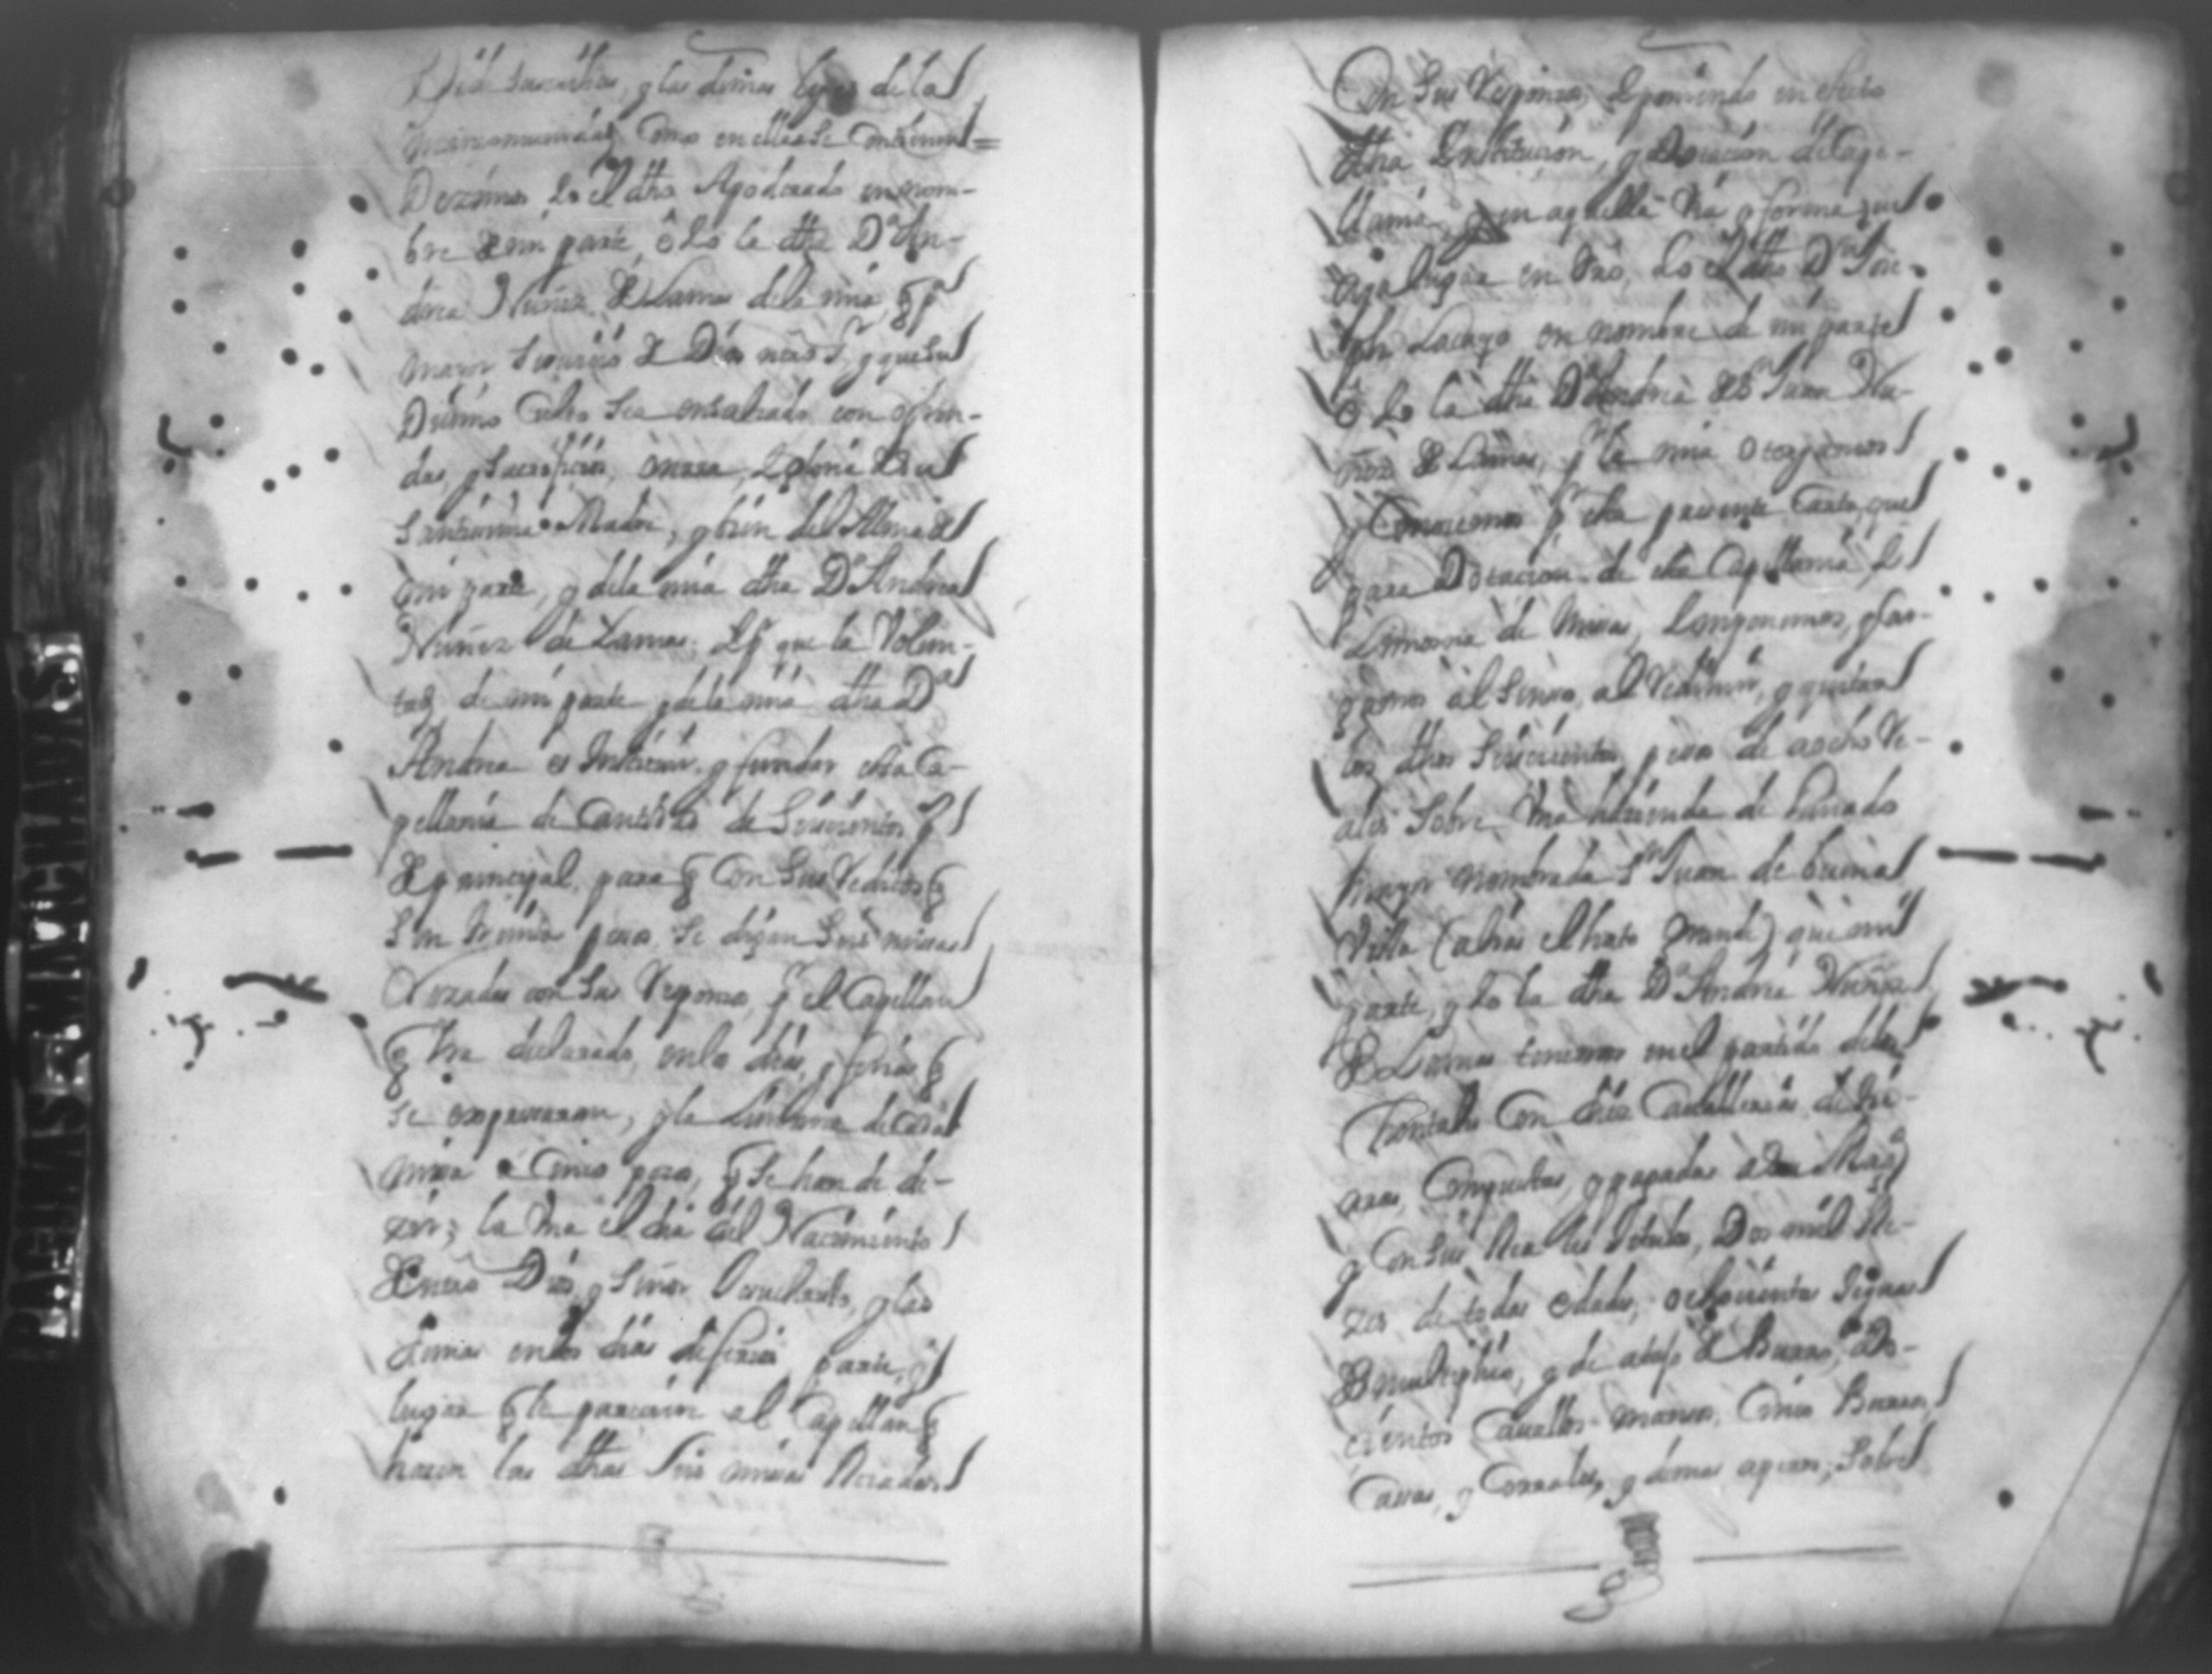 y las demas leyes de la
mancomunidad, como en ellas se contienen =
Dezimos Yo el dho Apoderado en nom-
bre de mi parte, ê Yo la dha Dª An-
drea Nuñez de Lamas de la mia, q pª
mayor servicio de Dios nrõ Sʳ, y que su
Divino Culto sea ensalzado con ofren-
das, y sacrificios, onrra, y gloria de su
Santissima Madre, y bien del Alma de
mi parte, y de la mia dha Dª Andrea
Nuñez de Lamas. Y pʳ que la Volun-
tad de mi parte y de la mia dha Dª
Andrea es Instituir, y fundar esta Ca-
pellania de cantidad de seiscientos pˢ
de principal, para q con sus reditos q
son treinta pesos, se digan seis missas
Rezadas con sus responsos, pʳ el Capellan
q ira declarado, en los dias, y ferias q
se expressaran, y la Limosna de cada
missa a cinco pesos, q se han de de-
zir; la una el dia del Nacimiento
de nrõ Dios, y Señor Jesuchristo, y las
demas en los dias de feria, parte, y
lugar q le pareciere al Capellan q
hacer las dhas seis missas Rezadas
Con sus Responsos, y poniendo en efecto
dha Institucion, y Dotacion de Cape-
llania, y en aquella via y forma que
aya lugar en dro, Yo el dho Dⁿ
Lacayo en nombre de mi parte
ê Yo la dha Dª Andrea de Sⁿ Juan Nu-
ñez de Lamas, pʳ la mia otorgamos
y Conocemos pʳ esta presente Carta, que
para Dotacion de esta Capellania, y
Limosna de missas, Ymponemos, y car-
gamos al Senso, al Redimir, y quitar
los dhos seiscientos pesos de a ocho Re-
ales sobre una hazienda de Ganado
mayor nombrada Sⁿ Juan de buena
Vista (alias el hato grande) que mi
parte, y Yo la dha Dª Andrea Nuñez
de Lamas tenemos en el partido de los
Chontales con diez Cavallerias de tie-
rras compuestas, y pagadas a su Magᵈ
y con sus Reales titulos, Dos mil Re-
zes de todas edades, ochocientas Yeguas
de multiplico, y de atajo de Burro, Do-
cientos Cavallos mansos, Cinco Burros,
Casas, y Corrales, y demas aperos, sobre
PAGINAS MANCHADAS